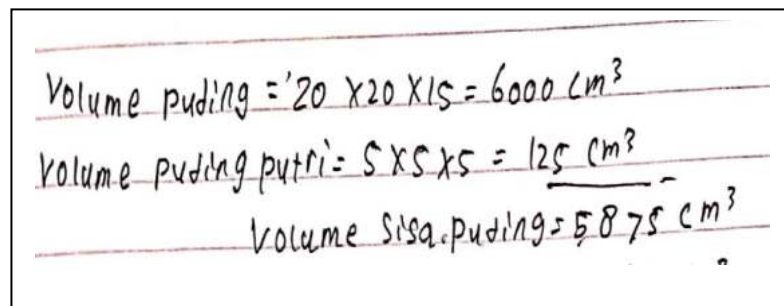 Volume puding = 20 x 20 x 15 = 6000 cm³
Volume puding putri = 5 x 5 x 5 = 125 cm³
Volume sisa puding = 5875 cm³